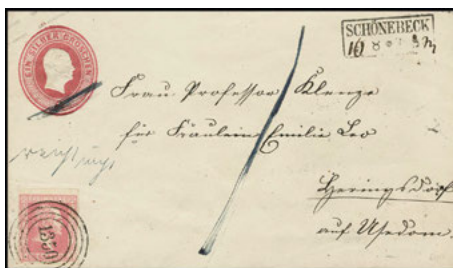 EIN SILBER GROSCHEN
SCHÖNEBECK
Frau Professor Klenze
für Fräulein Emilie Leo
Heringsdorf
auf Usedom.
1350